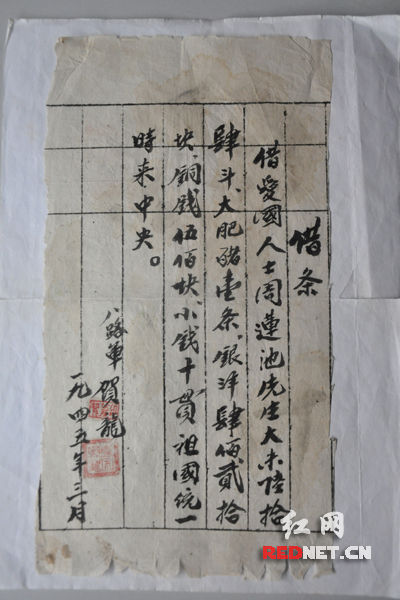 借条
借愛國人士周蓮池先生大米陸拾
肆斗、大肥豬壹条、銀洋肆佰貳拾
块、铜錢伍佰块、小钱十贯、祖國統一
時来中央。
八路軍 賀龍
一九四五年三月
红网
REDNET.CN